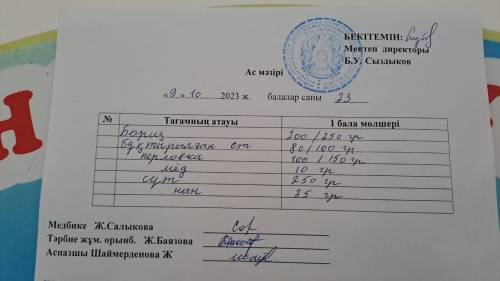 БЕКІТЕМІН:
Мектеп директоры
Б.У. Сыздыков
Ас мәзірі
«9» 10 2023 ж. балалар саны 23
№ Тағамның атауы 1 бала мөлшері
Борщ 200/250 гр
бұқтырылған ет 80/100 гр
перловка 100/150 гр
мёд 10 гр
сүт 250 гр
нан 35 гр
Медбике Ж.Салыкова
Тәрбие жұм. орынб. Ж.Баязова
Аспазшы Шаймерденова Ж